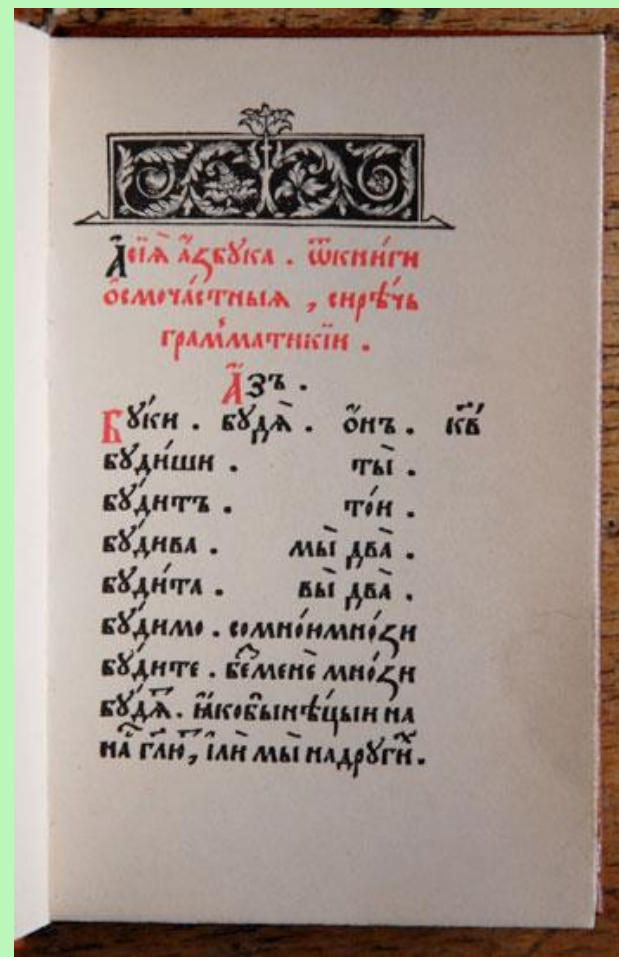 А҆сїѧ̀ а҆́збꙋка . ѿкни́ги
ѻ҆смоча́стныѧ , сирѣ́чь
грамма́тикїи .
А҆́зъ .
Бꙋ́ки . бꙋдѧ̀ . ѻ҆́нъ . кв҃
бꙋди́ши . ты̀ .
бꙋ́дитъ . то́и .
бꙋ́дива . мы̀ два̀ .
бꙋди́та . вы̀ два̀ .
бꙋ́димо . сомно́имно́ѕи
бꙋ́дите . беⷥменѐ мно́ѕи
бꙋ́дѧⷮ . ꙗ҆́кобынѣ́цыи на
на̀ гл҃ю , і҆лѝ мы̀ надрꙋги́ⷯ .